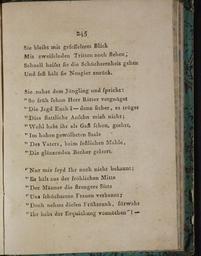 245
Sie bleibt mit gesenktem Blick
Mit zweifelnden Tritten noch stehen,
Schnell heißt sie die Schüchternheit gehen
Und fest hält sie Neugier zurück.
Sie nahet dem Jüngling und spricht:
"So früh schon Herr Ritter vergnüget
"Die Jagd Euch! — denn sicher, es trüget
"Dies stattliche Ansehn mich nicht;
"Wohl habt ihr als Gast schon, geehrt,
"Im hohen gewölbeten Saale
"Des Vaters, beim festlichen Mahle,
"Die glänzenden Becher geleert.
"Nur mir seyd Ihr noch nicht bekannt;
"Es hält aus der fröhlichen Mitte
"Der Männer die strengere Sitte
"Uns schüchterne Frauen verbannt;
"Doch nehmt diesen Frühtrunk, fürwahr
"Ihr habt der Erquickung vonnöthen"! —